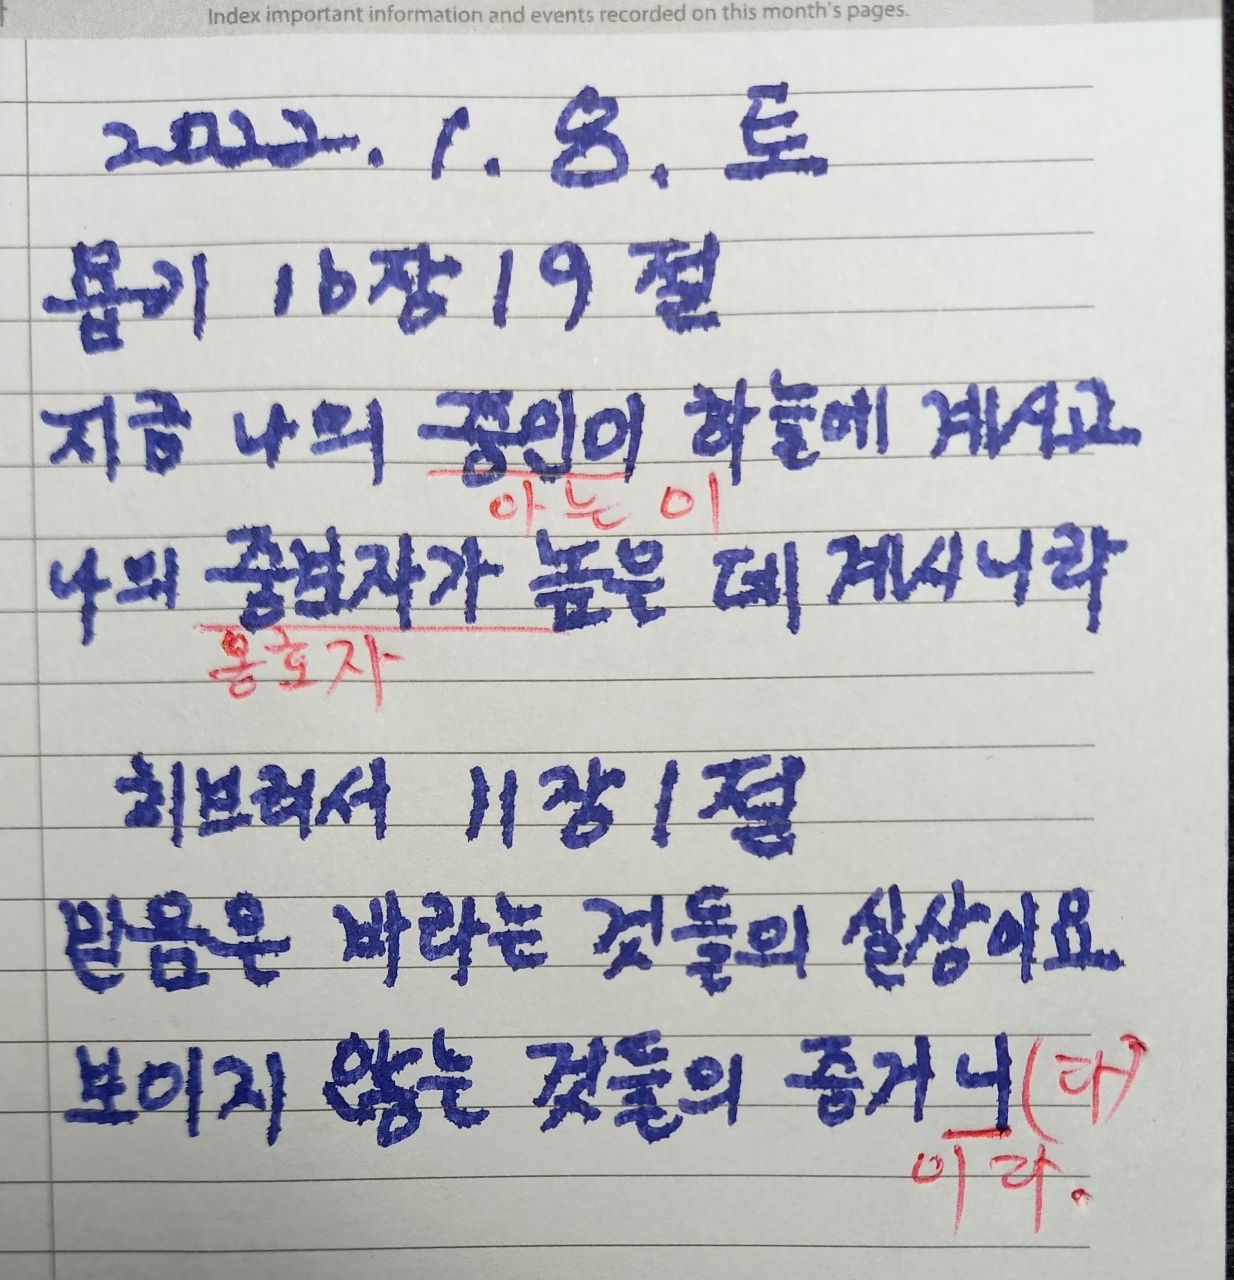 Index important information and events recorded on this month's pages.
2022. 1. 8. 토
욥기 16장 19절
지금 나의 증인이 하늘에 계시고
아는 이
나의 중보자가 높은 데 계시니라
옹호자
히브리서 11장 1절
믿음은 바라는 것들의 실상이요
보이지 않는 것들의 증거니(라)
이라.